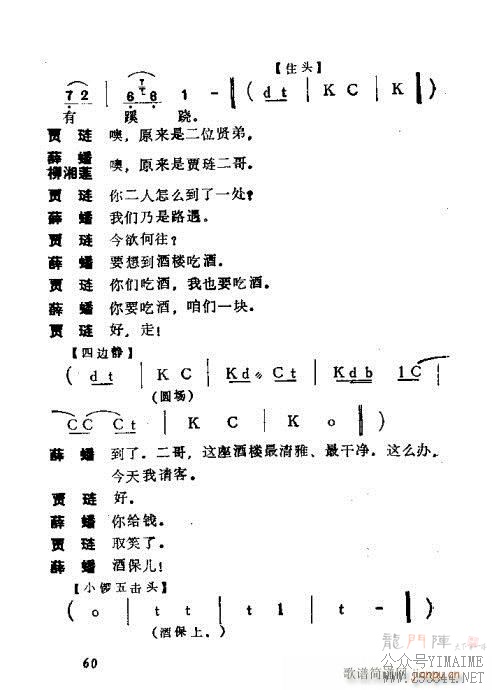 【住头】
7 2 | 6 6 1 - ‖ ( d t | K C | K ‖ )
有 蹊 跷。
贾 琏 噢，原来是二位贤弟。
薛 蟠
柳湘莲 噢，原来是贾琏二哥。
贾 琏 你二人怎么到了一处？
薛 蟠 我们乃是路遇。
贾 琏 今欲何往？
薛 蟠 要想到酒楼吃酒。
贾 琏 你们吃酒，我也要吃酒。
薛 蟠 你要吃酒，咱们一块。
贾 琏 好，走！
【四边静】
( d t | K C | K d C t | K d b 1 C |
(圆场)
C C C t | K C | K o ‖ )
薛 蟠 到了。二哥，这座酒楼最清雅、最干净。这么办，
今天我请客。
贾 琏 好。
薛 蟠 你给钱。
贾 琏 取笑了。
薛 蟠 酒保儿！
【小锣五击头】
( o | t t | t 1 | t - ‖ )
(酒保上。)
60
龍門陣
歌谱简谱网
公众号YIMAIME